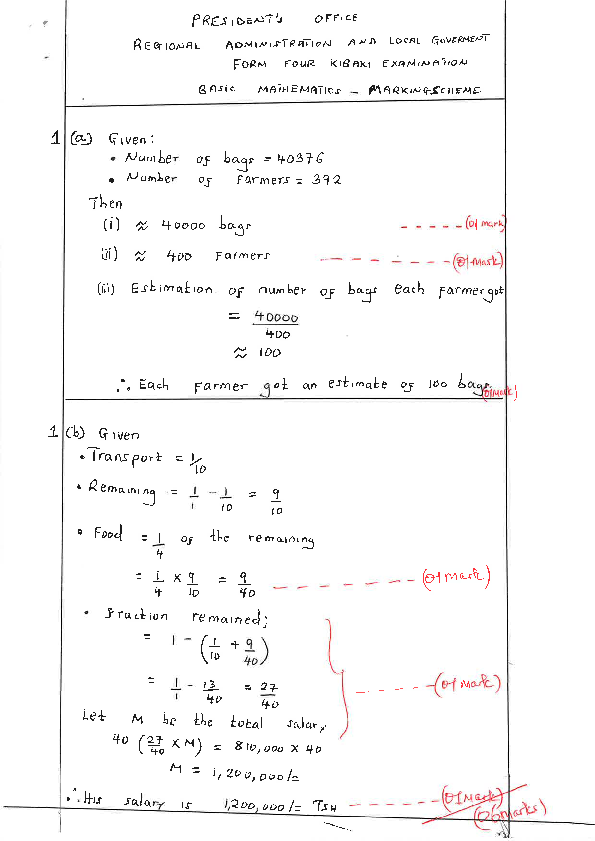 PRESIDENT'S OFFICE
REGIONAL ADMINISTRATION AND LOCAL GOVERMENT
FORM FOUR KIBAKI EXAMINATION
BASIC MATHEMATICS - MARKINGSCHEME
1 (a) Given:
• Number of bags = 40376
• Number of Farmers = 392
Then
(i) ≈ 40000 bags - - - - - (01 mark)
(ii) ≈ 400 Farmers - - - - - - - (01 mark)
(iii) Estimation of number of bags each farmer got
= 40000/400
≈ 100
∴ Each Farmer got an estimate of 100 bags. (01 mark)
1 (b) Given
• Transport = 1/10
• Remaining = 1/1 - 1/10 = 9/10
• Food = 1/4 of the remaining
= 1/4 × 9/10 = 9/40 - - - - - - - (01 mark)
• Fraction remained;
= 1 - (1/10 + 9/40)
= 1/1 - 13/40 = 27/40 - - - - - (01 mark)
Let M be the total salary,
40 (27/40 × M) = 810,000 × 40
M = 1,200,000/=
∴ His salary is 1,200,000/= TSH - - - - - - (01 Mark)
(06 marks)